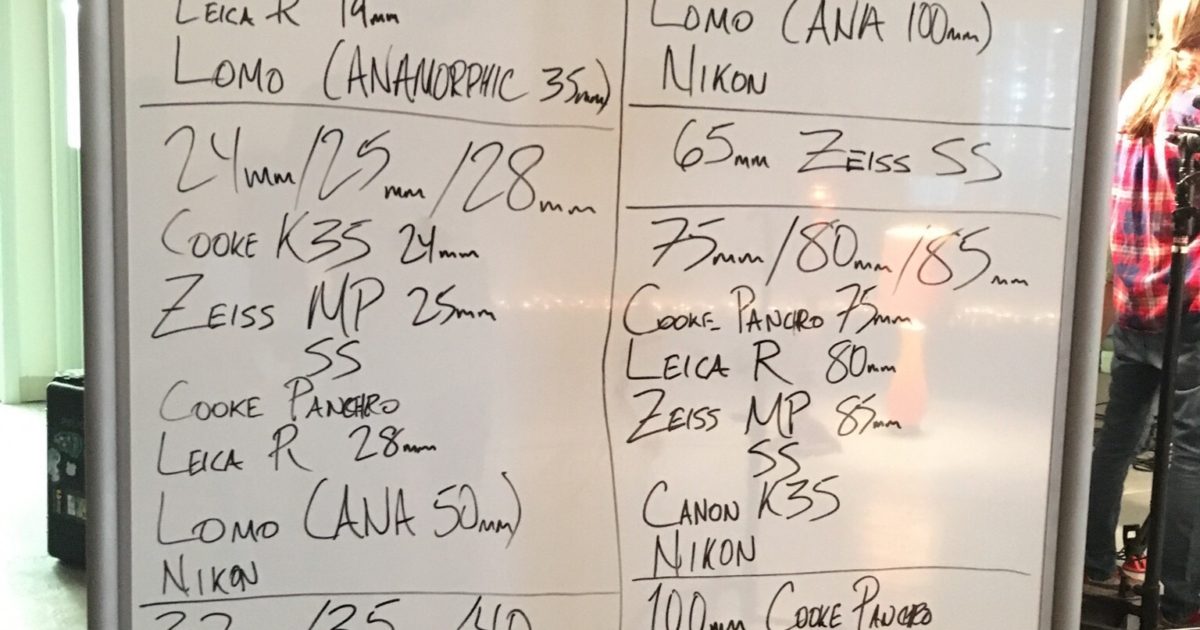 LEICA R 19mm
LOMO (ANAMORPHIC 35mm)
24mm/25mm/28mm
COOKE K35 24mm
ZEISS MP 25mm
SS
COOKE PANCHRO
LEICA R 28mm
LOMO (ANA 50mm)
NIKON
32 /35 /40
LOMO (ANA 100mm)
NIKON
65mm ZEISS SS
75mm/80mm/85mm
COOKE PANCHRO 75mm
LEICA R 80mm
ZEISS MP 85mm
SS
CANON K35
NIKON
100mm COOKE PANCHRO